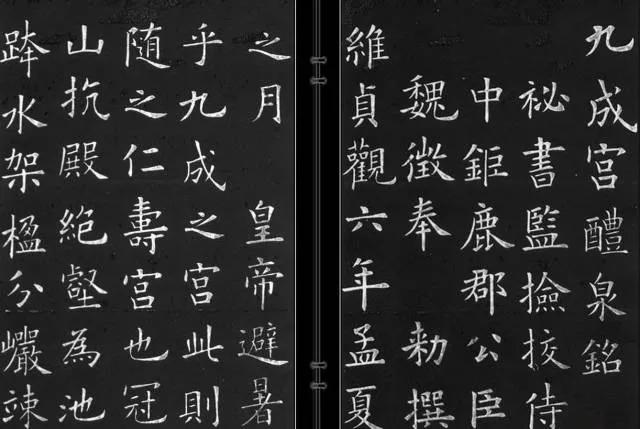 九成宮醴泉銘
祕書監撿挍侍
中鉅鹿郡公臣
魏徵奉 勑撰
維貞觀六年孟夏
之月 皇帝避暑
乎九成之宮此則
随之仁壽宮也冠
山抗殿絶壑為池
跨水架楹分巗竦